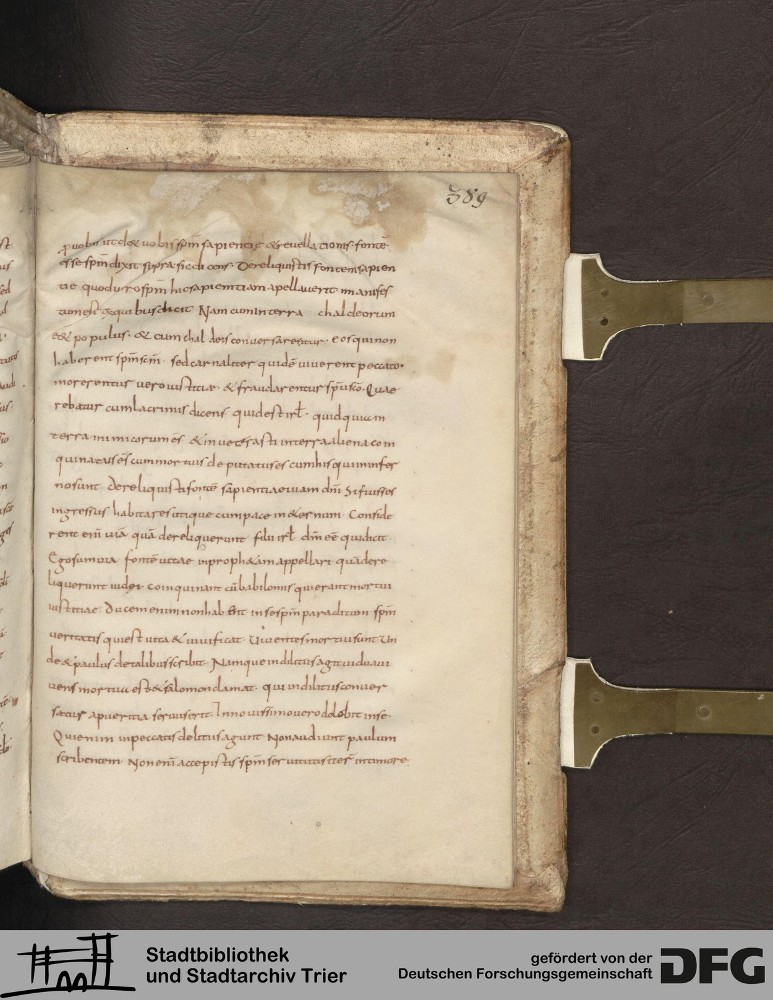 389
esse spm dixit supra sic dicens. Dereliquistis fontem sapien
tie quod uero spm hic sapientiam apellauerit manifes
tum est sequibus dicit Nam cum in terra chaldeorum
populus. & cum chaldeis conuersarentur. eos qui non
haberent spm scm. sed carnaliter quidē uiuerent peccato.
morerentur uero iustitiæ. & fraudarentur
cum lacrimis dicens quid est irl. quid quia in
terra inimicorum es & in ueterasti in terra aliena coin
quinatus es cum mortuis deputatus es cum his qui in infer
no sunt. dereliquisti fontē sapientiae uiam dni Si fuisses
ingressus habitares utique cum pace in &ernum. Conside
rent eni uiā quā dereliquerunt filii irl. dnm eē qui dicit.
Ego sum uia fontē uitae in proph&am appellari quā dere
liquerunt iudei coinquinati cū babilonus qui erant mortui
iustitiae. Ducem enim non hab in se spm paraditum spm
ueritatis qui est uita & uiuificat. Uiuentes mortui sunt un
de & paulus de talibus scribit. Nam que in dilitiis agit uidua ui
uens mortua est & salomon clamat. qui in dilitiis conuer
satur a pueritia seruus erit. In nouissimo uero dolebit in se.
Qui enim in peccatis delitiis agunt Non audiunt paulum
scribentem. Non eni accepistis spm seruitutis iter in timore
Stadtbibliothek
und Stadtarchiv Trier
gefördert von der
Deutschen Forschungsgemeinschaft
DFG